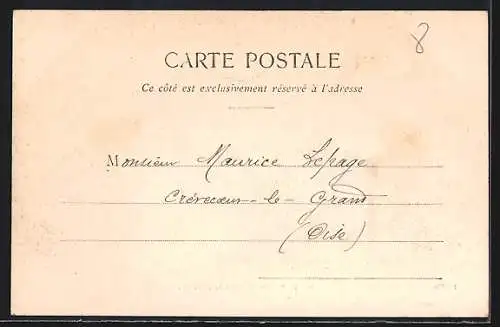 8
CARTE POSTALE
Ce côté est exclusivement réservé à l'adresse
Monsieur Maurice Lepage
Crèvecoeur-le-Grand
(Oise)